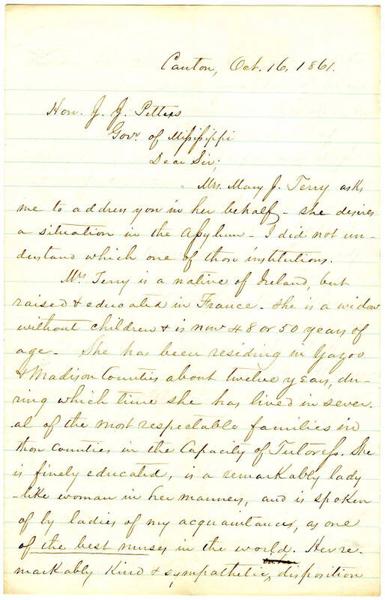 Canton, Oct. 16, 1861.
Hon. J. J. Petters
Gov. of Mississippi
Dear Sir;
Mrs. Mary J. Terry asks
me to address you in her behalf - she desires
a situation in the Asylum - I did not un-
derstand which one of those institutions.
Mrs Terry is a native of Ireland, but
raised & educated in France. She is a widow
without children & is now 48 or 50 years of
age. She has been residing in Yazoo
& Madison Counties about twelve years, du-
ring which time she has lived in sever-
al of the most respectable families in
those counties in the Capacity of Tutoress. She
is finely educated, is a remarkably lady
-like woman in her manners, and is spoken
of by ladies of my acquaintances, as one
of the best nurses in the world. Her re-
markably Kind & sympathetic, disposition